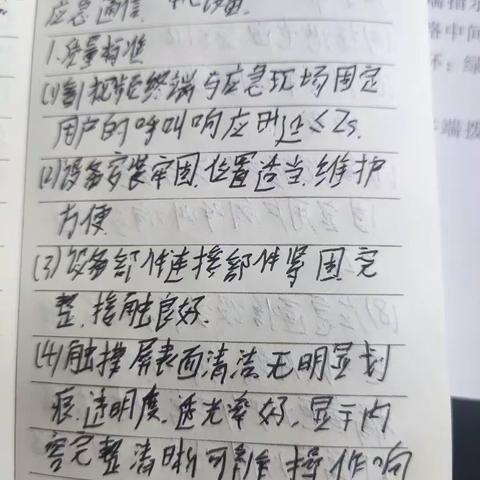 应急通信
1.质量标准
(1)音视频终端与应急现场固定
用户的呼叫响应时延≤2s.
(2)设备安装牢固.位置适当.维护
方便
(3)设备部件连接部件紧固完
整.接触良好.
(4)触摸屏表面清洁无明显划
痕.透明度.透光率好.显示内
容完整清晰可靠操作响
端指示
路中间
环:绿
端拨